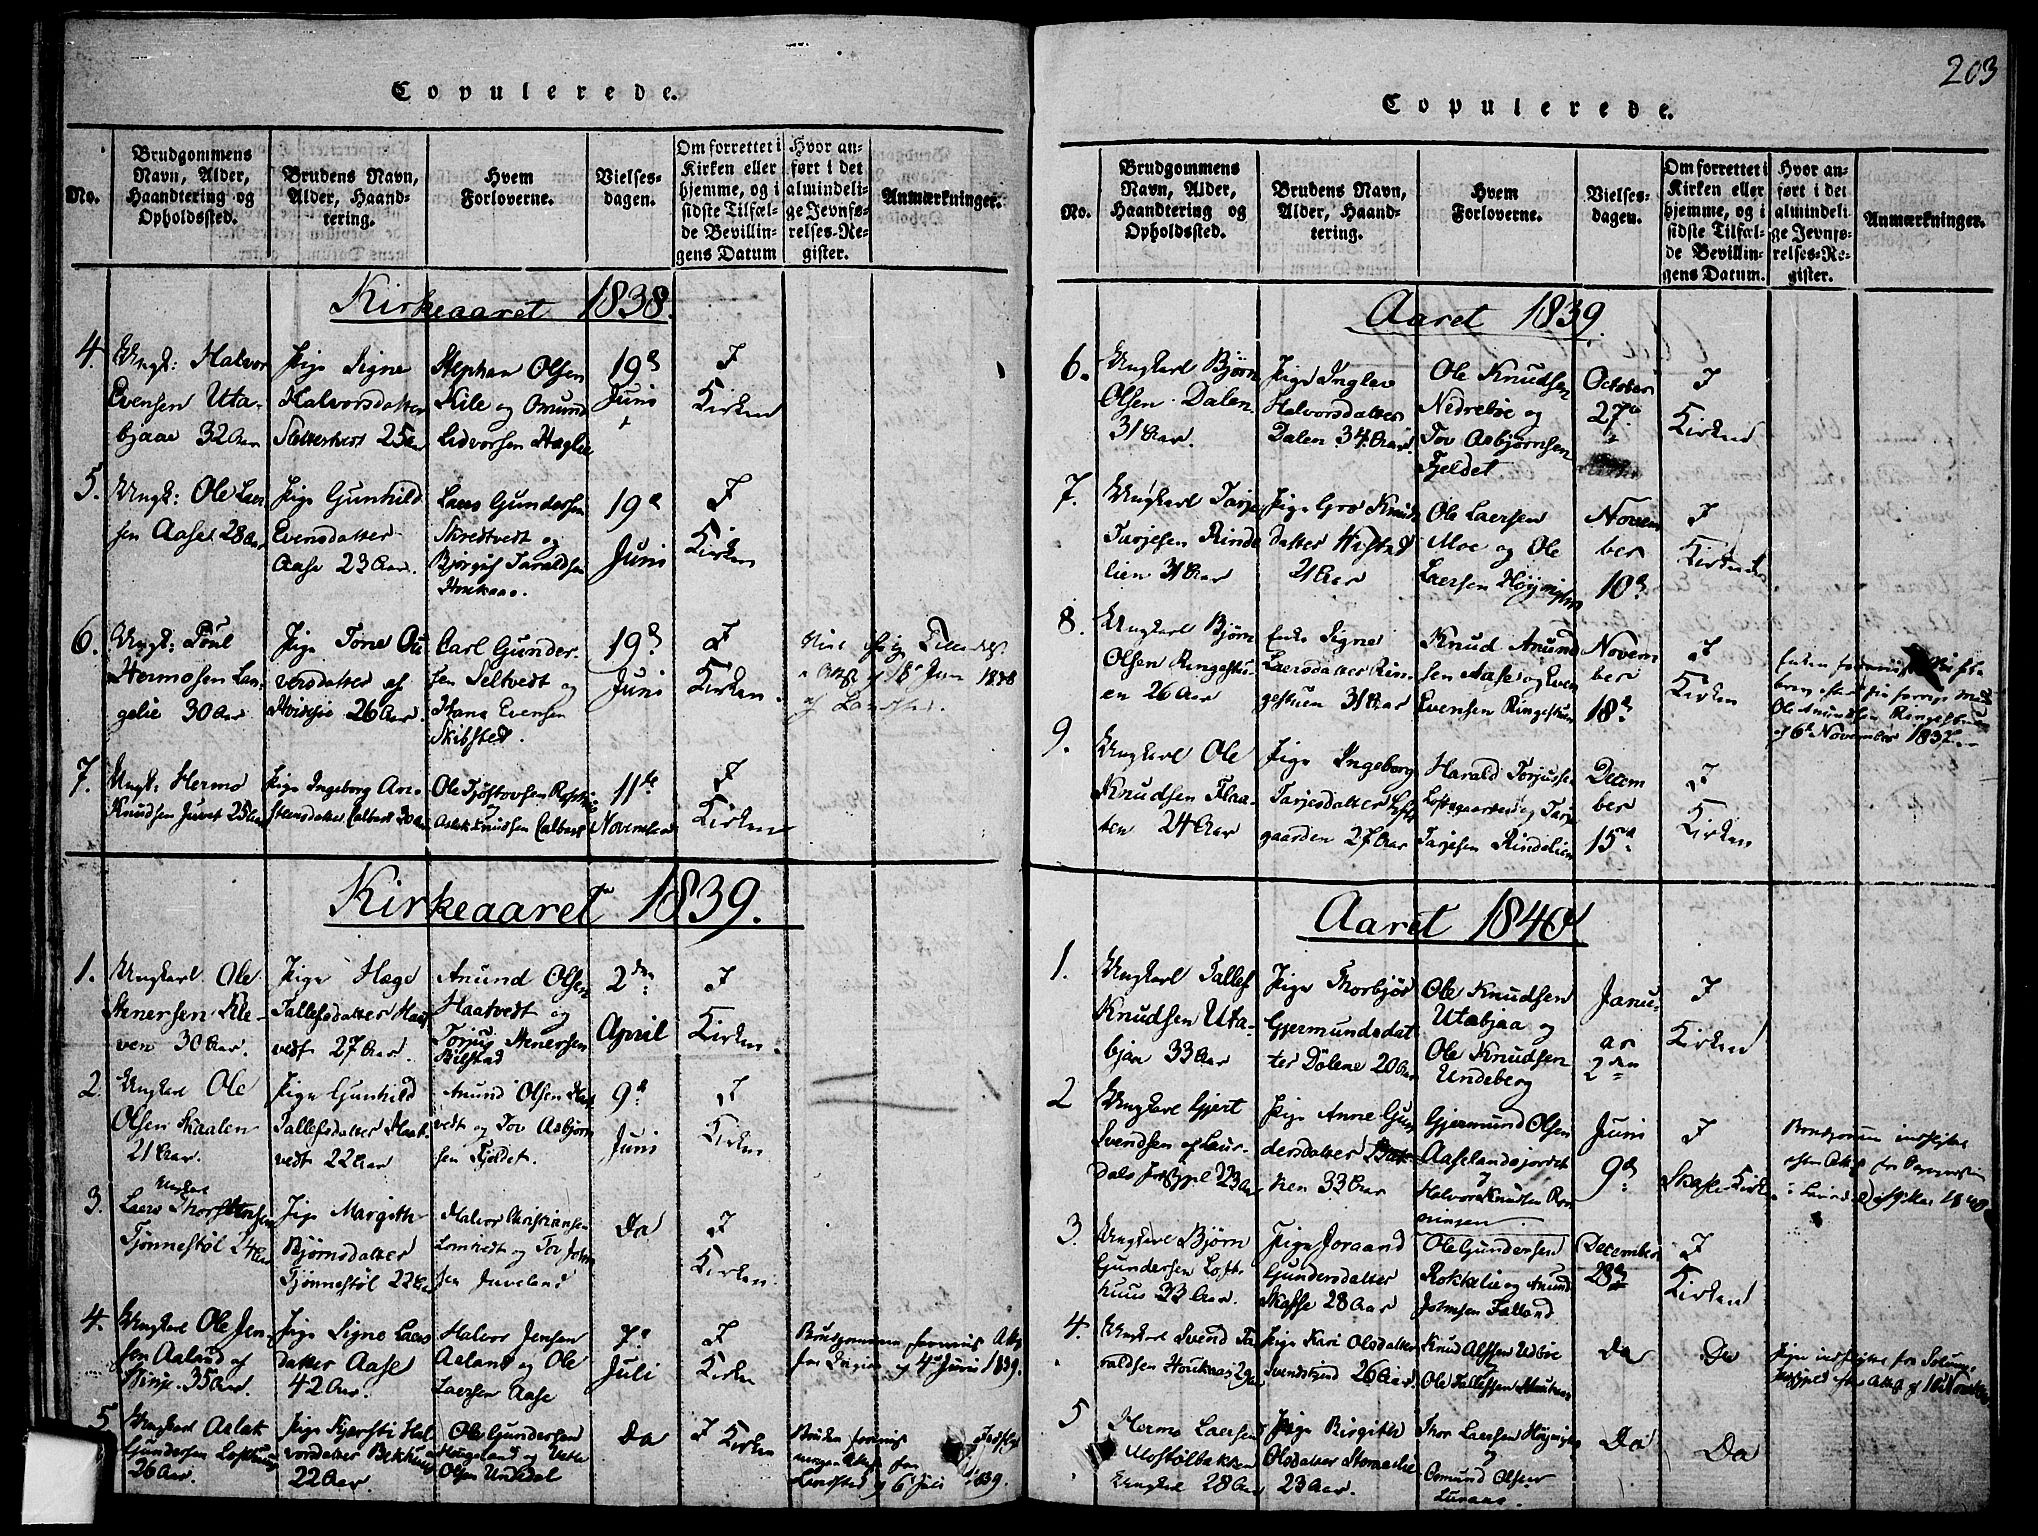 Copulerede.
No.
Brudgommens
Navn, Alder,
Haandtering og
Opholdssted.
Brudens Navn,
Alder, Haand-
tering.
Hvem
Forloverne.
Vielses-
dagen.
Om forrettet i
Kirken eller
hjemme, og i
sidste Tilfæl-
de Bevillin-
gens Datum
Hvor an-
ført i det
almindeli-
ge Jevnfø-
relses-Re-
gister.
Anmærkninger.
Kirkeaaret 1838.
4.
Ungk: Halvor
Evensen Uta-
bjaae 32 Aar
Pige Signe
Halvorsdatter
25 Aar
Stephan Olsen
Kile og Omund
Lidvorsen Hæglie
19d
Juni
I
Kirken
5.
Ungk: Ole Laer-
sen Aaset 28 Aar
Pige Gunhild
Evensdatter
Aase 23 Aar.
Laers Gundersen
Skredtvedt og
Bjørgufs Taraldsen
Houknæs.
19d
Juni
I
Kirken
6.
Ungk: Poul
Hermosen Lan-
gelie 30 Aar
Pige Tone Ou-
versdatter af
26 Aar.
Carl Gunder-
sen Seltvedt og
Hans Evensen
Skibsted.
19d
Juni
I
Kirken.
Juni 1838
af
7.
Ungk: Hermo
Knudsen Juvet 25 Aar
Pige Ingeborg Are-
stensdatter Calberg 30 Aar
Ole Tjøstovsen
og
Aslak Knudsen Calberg
11te
November
I
Kirken
Kirkeaaret 1839.
1.
Ungkarl Ole
Stenersen Kle-
ven 30 Aar.
Pige Hæge
Tallefsdatter Haat-
vedt 27 Aar.
Anund Olsen
Haatvedt og
Torjus Stenersen
Bilstad
2den
April
I
Kirken.
2.
Ungkarl Ole
Olsen Skaalen
21 Aar.
Pige Gunhild
Tallefsdatter Haat-
vedt 22 Aar
Anund Olsen Haat-
vedt og Tov Asbjørn-
sen Fjeldet.
9d
Juni
I
Kirken
3.
Ungkarl
Laers Thorstensen
Tjønnestøl 24 Aar
Pige Margith
Bjørnsdatter
Tjønnestøl 22 Aar
Halvor Christiansen
Lomtvedt og Tov John-
sen Juveland
Do
I
Kirken.
4.
Ungkarl Ole Jen-
sen Aaland af
Vinje. 35 Aar.
Pige Signe Laers-
datter Aase
42 Aar.
Halvor Jensen
Aaland og Ole
Laersen Aase
7d
Juli
I
Kirken
Brudgommen forevis Attest
fra Vinje af 4de Juni 1839.
5.
Ungkarl Aslak
Gundersen Lofthuus
26 Aar.
Pige Kjersti Hal-
vorsdatter Bekkhuus
22 Aar.
Ole Gundersen
Haugeland og Vetle
Olsen Undedal
Do
I Kirken
Bruden forevis
Attest fra
af 6 Juli
1839.
203
Copulerede.
No.
Brudgommens
Navn, Alder,
Haandtering og
Opholdssted.
Brudens Navn,
Alder, Haand-
tering.
Hvem
Forloverne.
Vielses-
dagen.
Om forrettet i
Kirken eller
hjemme, og i
sidste Tilfæl-
de Bevillin-
gens Datum.
Hvor an-
ført i det
almindeli-
ge Jevnfø-
relses-Re-
gister.
Anmærkninger.
Aaret 1839.
6.
Ungkarl Bjørn
Olsen Dalen.
31 Aar.
Pige Inglev
Halvorsdatter
Dalen 34 Aar.
Ole Knudsen
Nedrebøe og
Tov Asbjørnsen
Fjeldet
October
27de
I
Kirken
7.
Ungkarl Tarje
Tarjesen Rinde-
lien 31 Aar
Pige Gro Knuds-
datter Wistad
21 Aar
Ole Laersen
Moe og Ole
Laersen
Novem
ber
10d
I
Kirken
8.
Ungkarl Bjørn
Olsen Ringestu-
en 26 Aar
Enke Signe
Laersdatter Rin-
gestuen 31 Aar
Knud Anund-
sen Aase og Even
Evensen Ringestuen
Novem
ber
18d
I
Kirken
Enken
Ole Anundsen Ringestuen
af 6te November 1837.
9.
Ungkarl Ole
Knudsen Flaa-
ten 24 Aar
Pige Ingeborg
Tarjesdatter Lofts-
gaarden 27 Aar
Harald Torjussen
Loftsgaarden og Tarje
Tarjesen Rindelien
Decem
ber
15d
I
Kirken
Aaret 1840
1.
Ungkarl Tallef
Knudsen Uta-
bjaa 33 Aar
Pige Thorbjør
Gjermundsdat-
ter Dølene 20 Aar
Ole Knudsen
Utabjaa og
Ole Knudsen
Undeberg
Janu-
ar
2den
I
Kirken
2
Ungkarl Gjert
Svendsen af Laur-
dals Præstgjel 23 Aar
Pige Anne Gun-
dersdatter Bak-
ken 33 Aar
Gjermund Olsen
Aaselandsjordet
og
Halvor Knudsen Røn-
ningen
Juni
9d
I
Skafse Kirke
Brudgommen
3.
Ungkarl Bjørn
Gundersen Loft-
huus 33 Aar.
Pige Joraand
Gundersdatter
Skafse 28 Aar
Ole Gundersen
Roktelie og Anund
Johnsen Falland
December
28d
I
Kirken
4.
Ungkarl Svend Ta-
raldsen Houknæs 29 Aar
Pige Kari Olsdatter
26 Aar.
Knud Alfsen Udbøe
og
Ole Tallefsen
Do
Do
5
Hermo Laersen
Mostølbakken
Ungkarl 28 Aar
Pige Birgith
Olsdatter
23 Aar.
Thor Laersen
og
Osmund Olsen
Do
Do